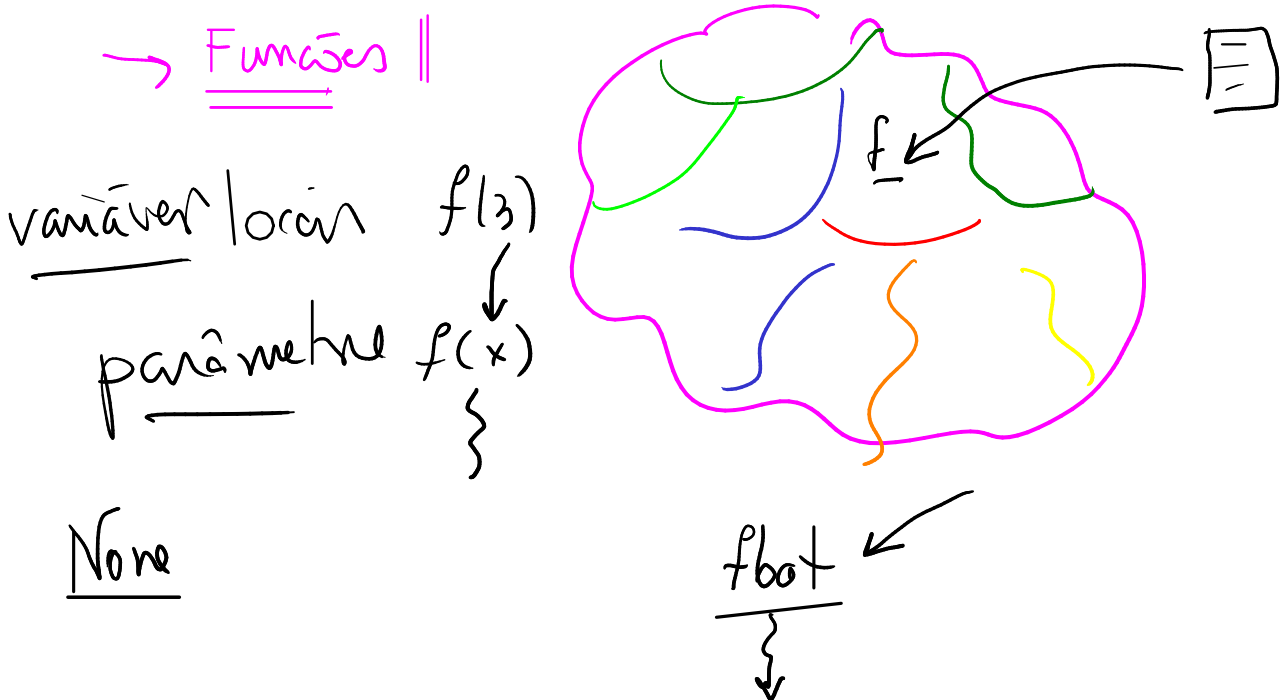 → Funções ||
variáveis locais
f(3)
parâmetro
f(x)
None
f
fbot